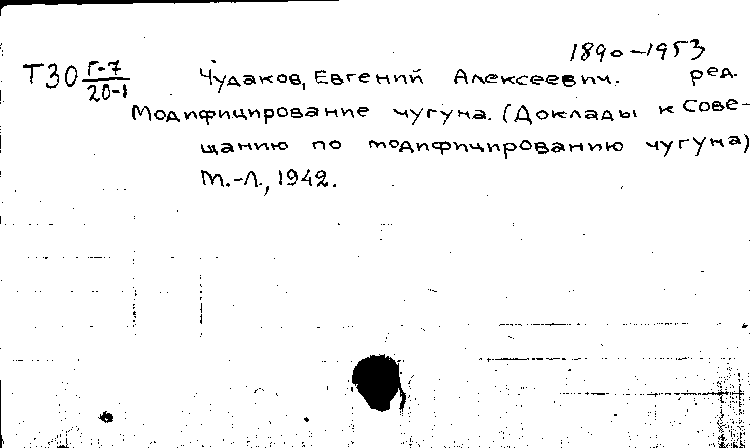 1890-1953
Т30 Г-7/20-1 Чудаков, Евгений Алексеевич. ред.
Модифицирование чугуна. (Доклады к Сове-
щанию по модифицированию чугуна)
М.-Л., 1942.